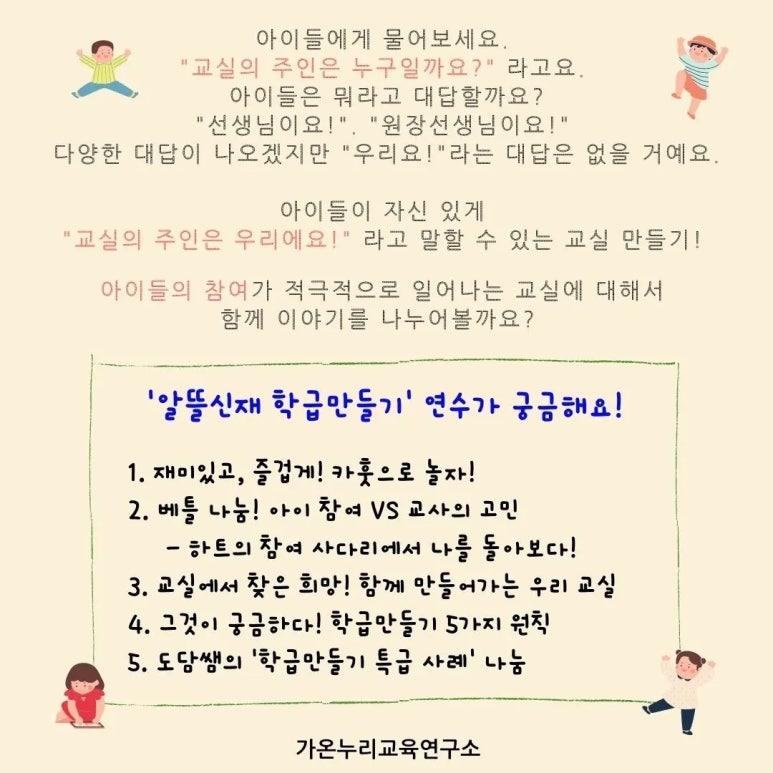 아이들에게 물어보세요.
"교실의 주인은 누구일까요?" 라고요.
아이들은 뭐라고 대답할까요?
"선생님이요!". "원장선생님이요!"
다양한 대답이 나오겠지만 "우리요!"라는 대답은 없을 거예요.
아이들이 자신 있게
"교실의 주인은 우리에요!" 라고 말할 수 있는 교실 만들기!
아이들의 참여가 적극적으로 일어나는 교실에 대해서
함께 이야기를 나누어볼까요?
'알뜰신재 학급만들기' 연수가 궁금해요!
1. 재미있고, 즐겁게! 카훗으로 놀자!
2. 베틀 나눔! 아이 참여 VS 교사의 고민
- 하트의 참여 사다리에서 나를 돌아보다!
3. 교실에서 찾은 희망! 함께 만들어가는 우리 교실
4. 그것이 궁금하다! 학급만들기 5가지 원칙
5. 도담쌤의 '학급만들기 특급 사례' 나눔
가온누리교육연구소